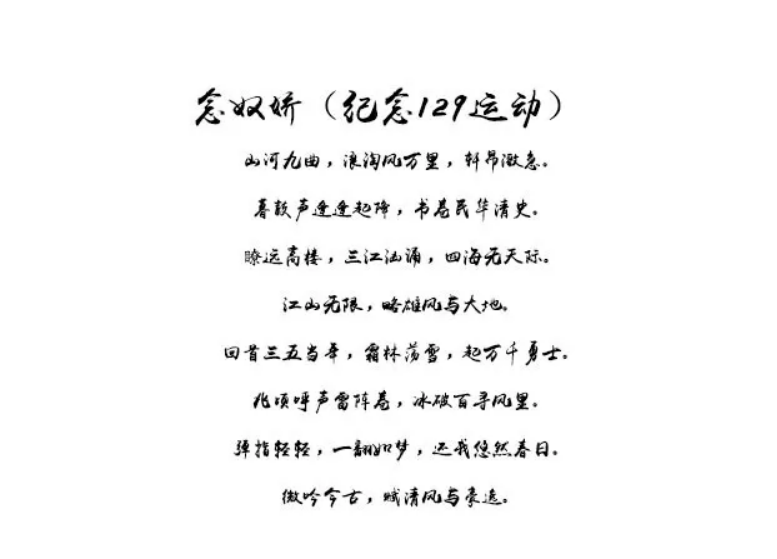 念奴娇（纪念129运动）
山河九曲，浪淘风万里，轩昂激急。
暮鼓声逢逢起降，书卷民华清史。
瞭远高楼，三江汹涌，四海无天际。
江山无限，略雄风与大地。
回首三五当年，霜林荡雪，起万千勇士。
兆顷呼声雷阵卷，冰破百寻风里。
弹指轻轻，一翻如梦，还我悠然春日。
微吟今古，赋清风与豪逸。